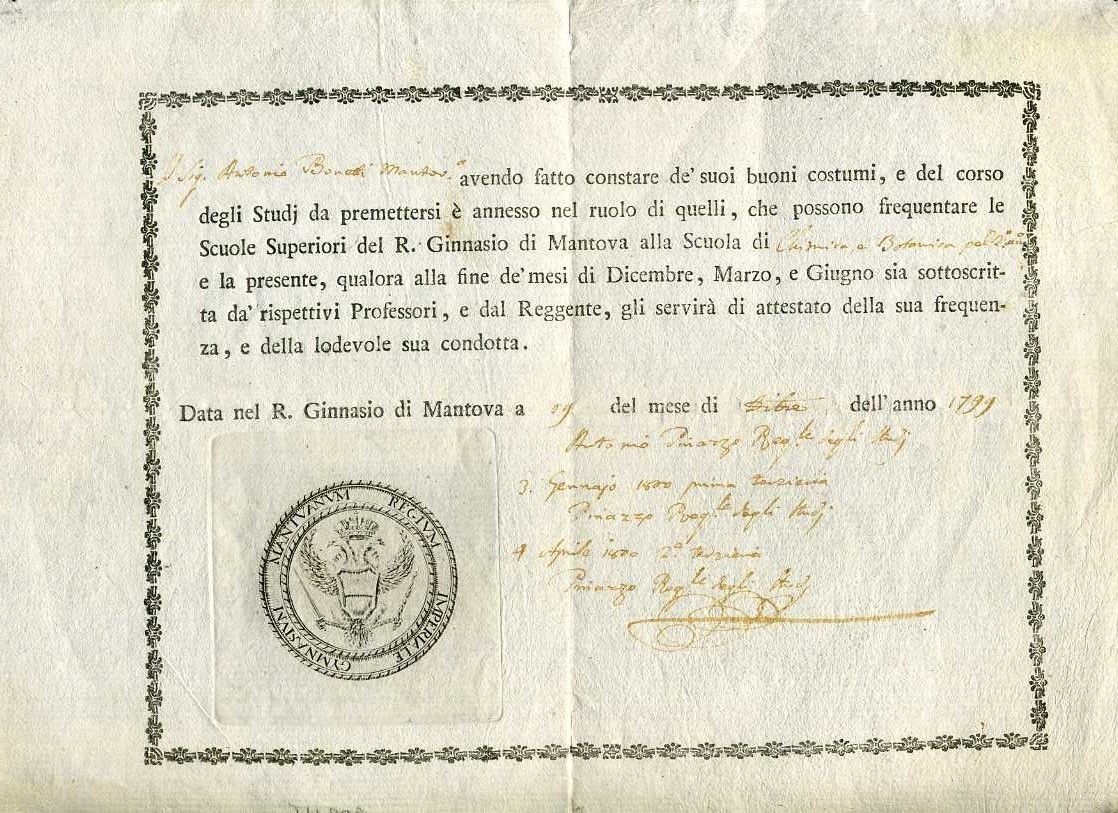 Il Sig. Antonio Mantov.º avendo fatto constare de' suoi buoni costumi, e del corso
degli Studj da premettersi è annesso nel ruolo di quelli, che possono frequentare le
Scuole Superiori del R. Ginnasio di Mantova alla Scuola di Chimica e Botanica
e la presente, qualora alla fine de' mesi di Dicembre, Marzo, e Giugno sia sottoscrit-
ta da' rispettivi Professori, e dal Reggente, gli servirà di attestato della sua frequen-
za, e della lodevole sua condotta.
Data nel R. Ginnasio di Mantova a 29 del mese di dell' anno 1799
Antonio Pinazzo Reg.te degli Studj
3. Gennajo 1800 prima terzieria
Pinazzo Reg.te degli Studj
4 Aprile 1800 2.a terzieria
Pinazzo Reg.te degli Studj
MANTUANUM REGIUM IMPERIALE GYMNASIUM